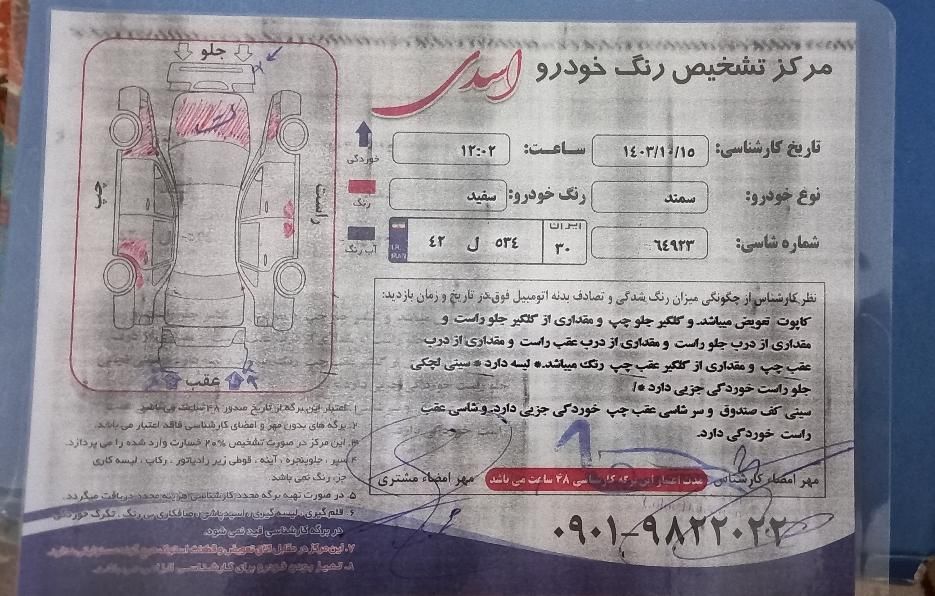 مرکز تشخیص رنگ خودرو اسدی
تاریخ کارشناسی: ۱۴۰۳/۱۰/۱۵ ساعت: ۱۲:۰۲
نوع خودرو: سمند رنگ خودرو: سفید
شماره شاسی: ۶۴۹۲۳ ایران ۳۰ ۵۳۴ ل ۴۲
نظر کارشناس از چگونگی میزان رنگ شدگی و تصادف بدنه اتومبیل فوق در تاریخ و زمان بازدید:
کاپوت تعویض میباشد. و گلگیر جلو چپ و مقداری از گلگیر جلو راست و
مقداری از درب جلو راست و مقداری از درب عقب راست و مقداری از درب
عقب چپ و مقداری از گلگیر عقب چپ رنگ میباشد.* لیسه دارد * سینی لچکی
جلو راست خوردگی جزیی دارد */
سینی کف صندوق و سر شاسی عقب چپ خوردگی جزیی دارد. و شاسی عقب
راست خوردگی دارد.
مهر امضاء کارشناس مدت اعتبار این برگه کارشناسی ۴۸ ساعت می باشد مهر امضاء مشتری
۰۹۰۱-۹۸۲۲۰۲۲
جلو
چپ
راست
عقب
خوردگی
رنگ
آب رنگ
۱. اعتبار این برگه از تاریخ صدور ۴۸ ساعت می باشد
۲. برگه های بدون مهر و امضای کارشناسی فاقد اعتبار می باشد.
۳. این مرکز در صورت تشخیص ۲۰% خسارت وارد شده را می پردازد.
۴. سپر، جلوپنجره، آینه، قوطی زیر رادیاتور، رکاب، لیسه کاری
جزء رنگ نمی باشد.
۵. در صورت تهیه برگه مجدد کارشناسی هزینه مجدد دریافت میگردد.
۶. قلم گیری، لیسه گیری، اسید پاشی، صافکاری بی رنگ، تگرگ خوردگی
در برگه کارشناسی قید نمی شود.
۷. این مرکز در مقابل اتاق تعویض و قطعات استوک هیچ گونه مسئولیتی ندارد.